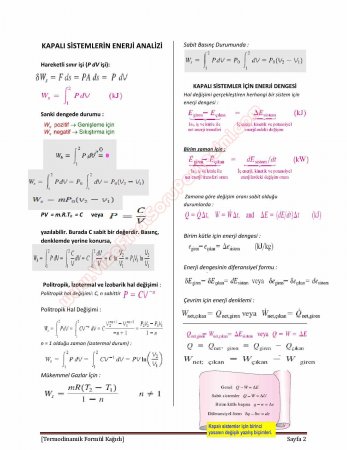 KAPALI SİSTEMLERİN ENERJİ ANALİZİ
Hareketli sınır işi (P dV işi):
δW_s = F ds = PA ds = P dV
W_s = ∫₁² P dV (kJ)
Sanki dengede durumu :
W_s pozitif → Genişleme için
W_s negatif → Sıkıştırma için
W_s = ∫₁² P dV = 0
W_s = ∫₁² P dV = P₀ ∫₁² dV = P₀(V₂ − V₁)
W_s = mP₀(v₂ − v₁)
PV = m.R.T₀ = C veya P = C/V
yazılabilir. Burada C sabit bir değerdir. Basınç,
denklemde yerine konursa,
W_s = ∫₁² P dV = ∫₁² C/V dV = C ∫₁² dV/V = C ln V₂/V₁ = P₁V₁ ln V₂/V₁
Politropik, İzotermal ve İzobarik hal değişimi :
Politropik hal değişimi: C, n sabittir P = CV⁻ⁿ
Politropik Hal Değişimi :
W_s = ∫₁² P dV = ∫₁² CV⁻ⁿ dV = C (V₂⁻ⁿ⁺¹ − V₁⁻ⁿ⁺¹)/(−n + 1) = (P₂V₂ − P₁V₁)/(1 − n)
n = 1 olduğu zaman (izotermal durum) :
W_s = ∫₁² P dV = ∫₁² CV⁻¹ dV = PV ln(V₂/V₁)
Mükemmel Gazlar İçin :
W_s = mR(T₂ − T₁)/(1 − n) n ≠ 1
Sabit Basınç Durumunda :
W_s = ∫₁² P dV = P₀ ∫₁² dV = P₀(V₂ − V₁)
KAPALI SİSTEMLER İÇİN ENERJİ DENGESİ
Hal değişimi gerçekleştiren herhangi bir sistem için
enerji dengesi :
E_giren − E_çıkan = ΔE_sistem (kJ)
Isı, iş ve kütle ile net enerji transferi
İç enerji, kinetik ve potansiyel enerjilerdeki değişim
Birim zaman için :
Ė_giren − Ė_çıkan = dE_sistem/dt (kW)
Isı, iş ve kütle ile net enerji transferi oranı
İç enerji, kinetik ve potansiyel enerjilerdeki değişim oranı
Zamana göre değişim oranı sabit olduğu
durumlarda :
Q = Q̇Δt, W = ẆΔt, and ΔE = (dE/dt)Δt (kJ)
Birim kütle için enerji dengesi :
e_giren − e_çıkan = Δe_sistem (kJ/kg)
Enerji dengesinin diferansiyel formu :
δE_giren − δE_çıkan = dE_sistem veya δe_giren − δe_çıkan = de_sistem
Çevrim için enerji denklemi :
W_net,çıkan = Q_net,giren veya Ẇ_net,çıkan = Q̇_net,giren
Q_net,giren − W_net,çıkan = ΔE_sistem veya Q − W = ΔE
Q = Q_net, giren = Q_giren − Q_çıkan
W_net; çıkan = W_çıkan − W_giren
Genel Q − W = ΔE
Sabit sistemler Q − W = ΔU
Birim kütle başına q − w = Δe
Diferansiyel form δq − δw = de
Kapalı sistemler için birinci
yasanın değişik yazılış biçimleri.
[Termodinamik Formül Kağıdı]
Sayfa 2